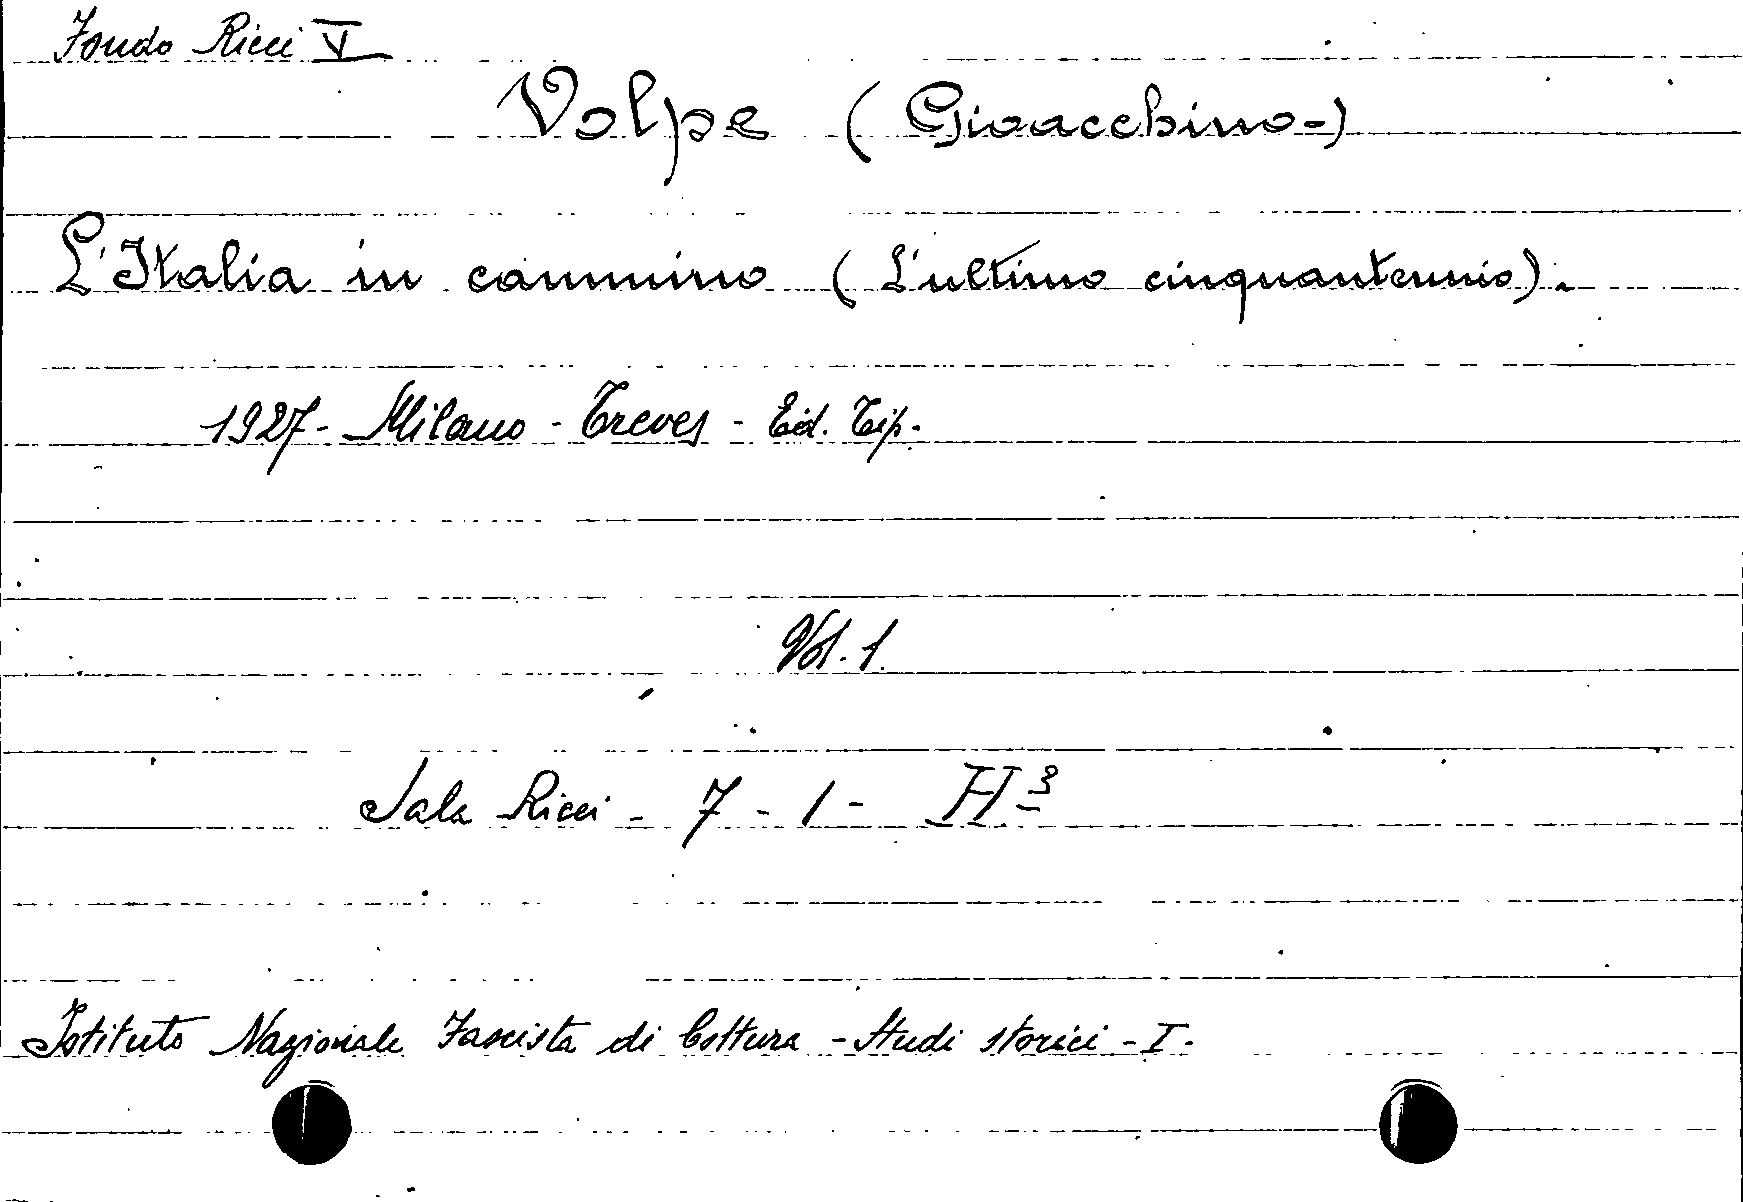 Fondo Ricci V
Volpe (Gioacchino-)
L'Italia in cammino (L'ultimo cinquantennio).
1927 - Milano - Treves - Ed. Tip.
Vol. 1
Sala Ricci - 7 - 1 - H 3
Istituto Nazionale Fascista di Coltura - Studi storici - I -